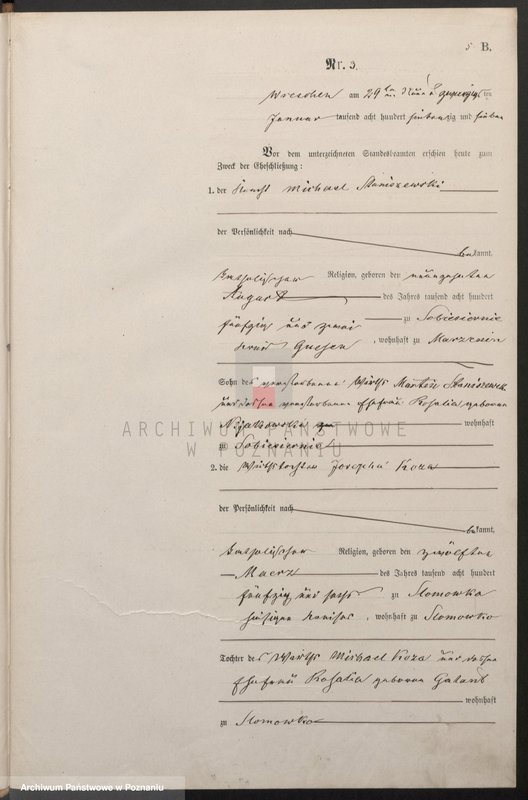 5 B.
Nr. 5.
Wreschen am 29ten Neun u zwanzigsten
Januar tausend acht hundert siebenzig und sieben
Vor dem unterzeichneten Standesbeamten erschien heute zum
Zweck der Eheschließung:
1. der Knecht Michael Staniszewski
der Persönlichkeit nach
bekannt,
katholischer Religion, geboren den neunzehnten
August des Jahres tausend acht hundert
fünfzig und zwei zu Sobiesiernie
Kreis Gnesen, wohnhaft zu Marzenin
Sohn des verstorbenen Wirths Martin Staniszewski
und dessen verstorbene Ehefrau Rosalia geborene
wohnhaft
zu Sobiesiernie
2. die Wirthstochter Josepha Koza
der Persönlichkeit nach
bekannt,
katholischer Religion, geboren den zwölften
Maerz des Jahres tausend acht hundert
fünfzig und sechs zu Slomowko
hiesigen Kreises, wohnhaft zu Slomowko
Tochter des Wirths Michael Koza und dessen
Ehefrau Rosalia geborene Galant
wohnhaft
zu Slomowko
ARCHIWUM PAŃSTWOWE
W POZNANIU
Archiwum Państwowe w Poznaniu